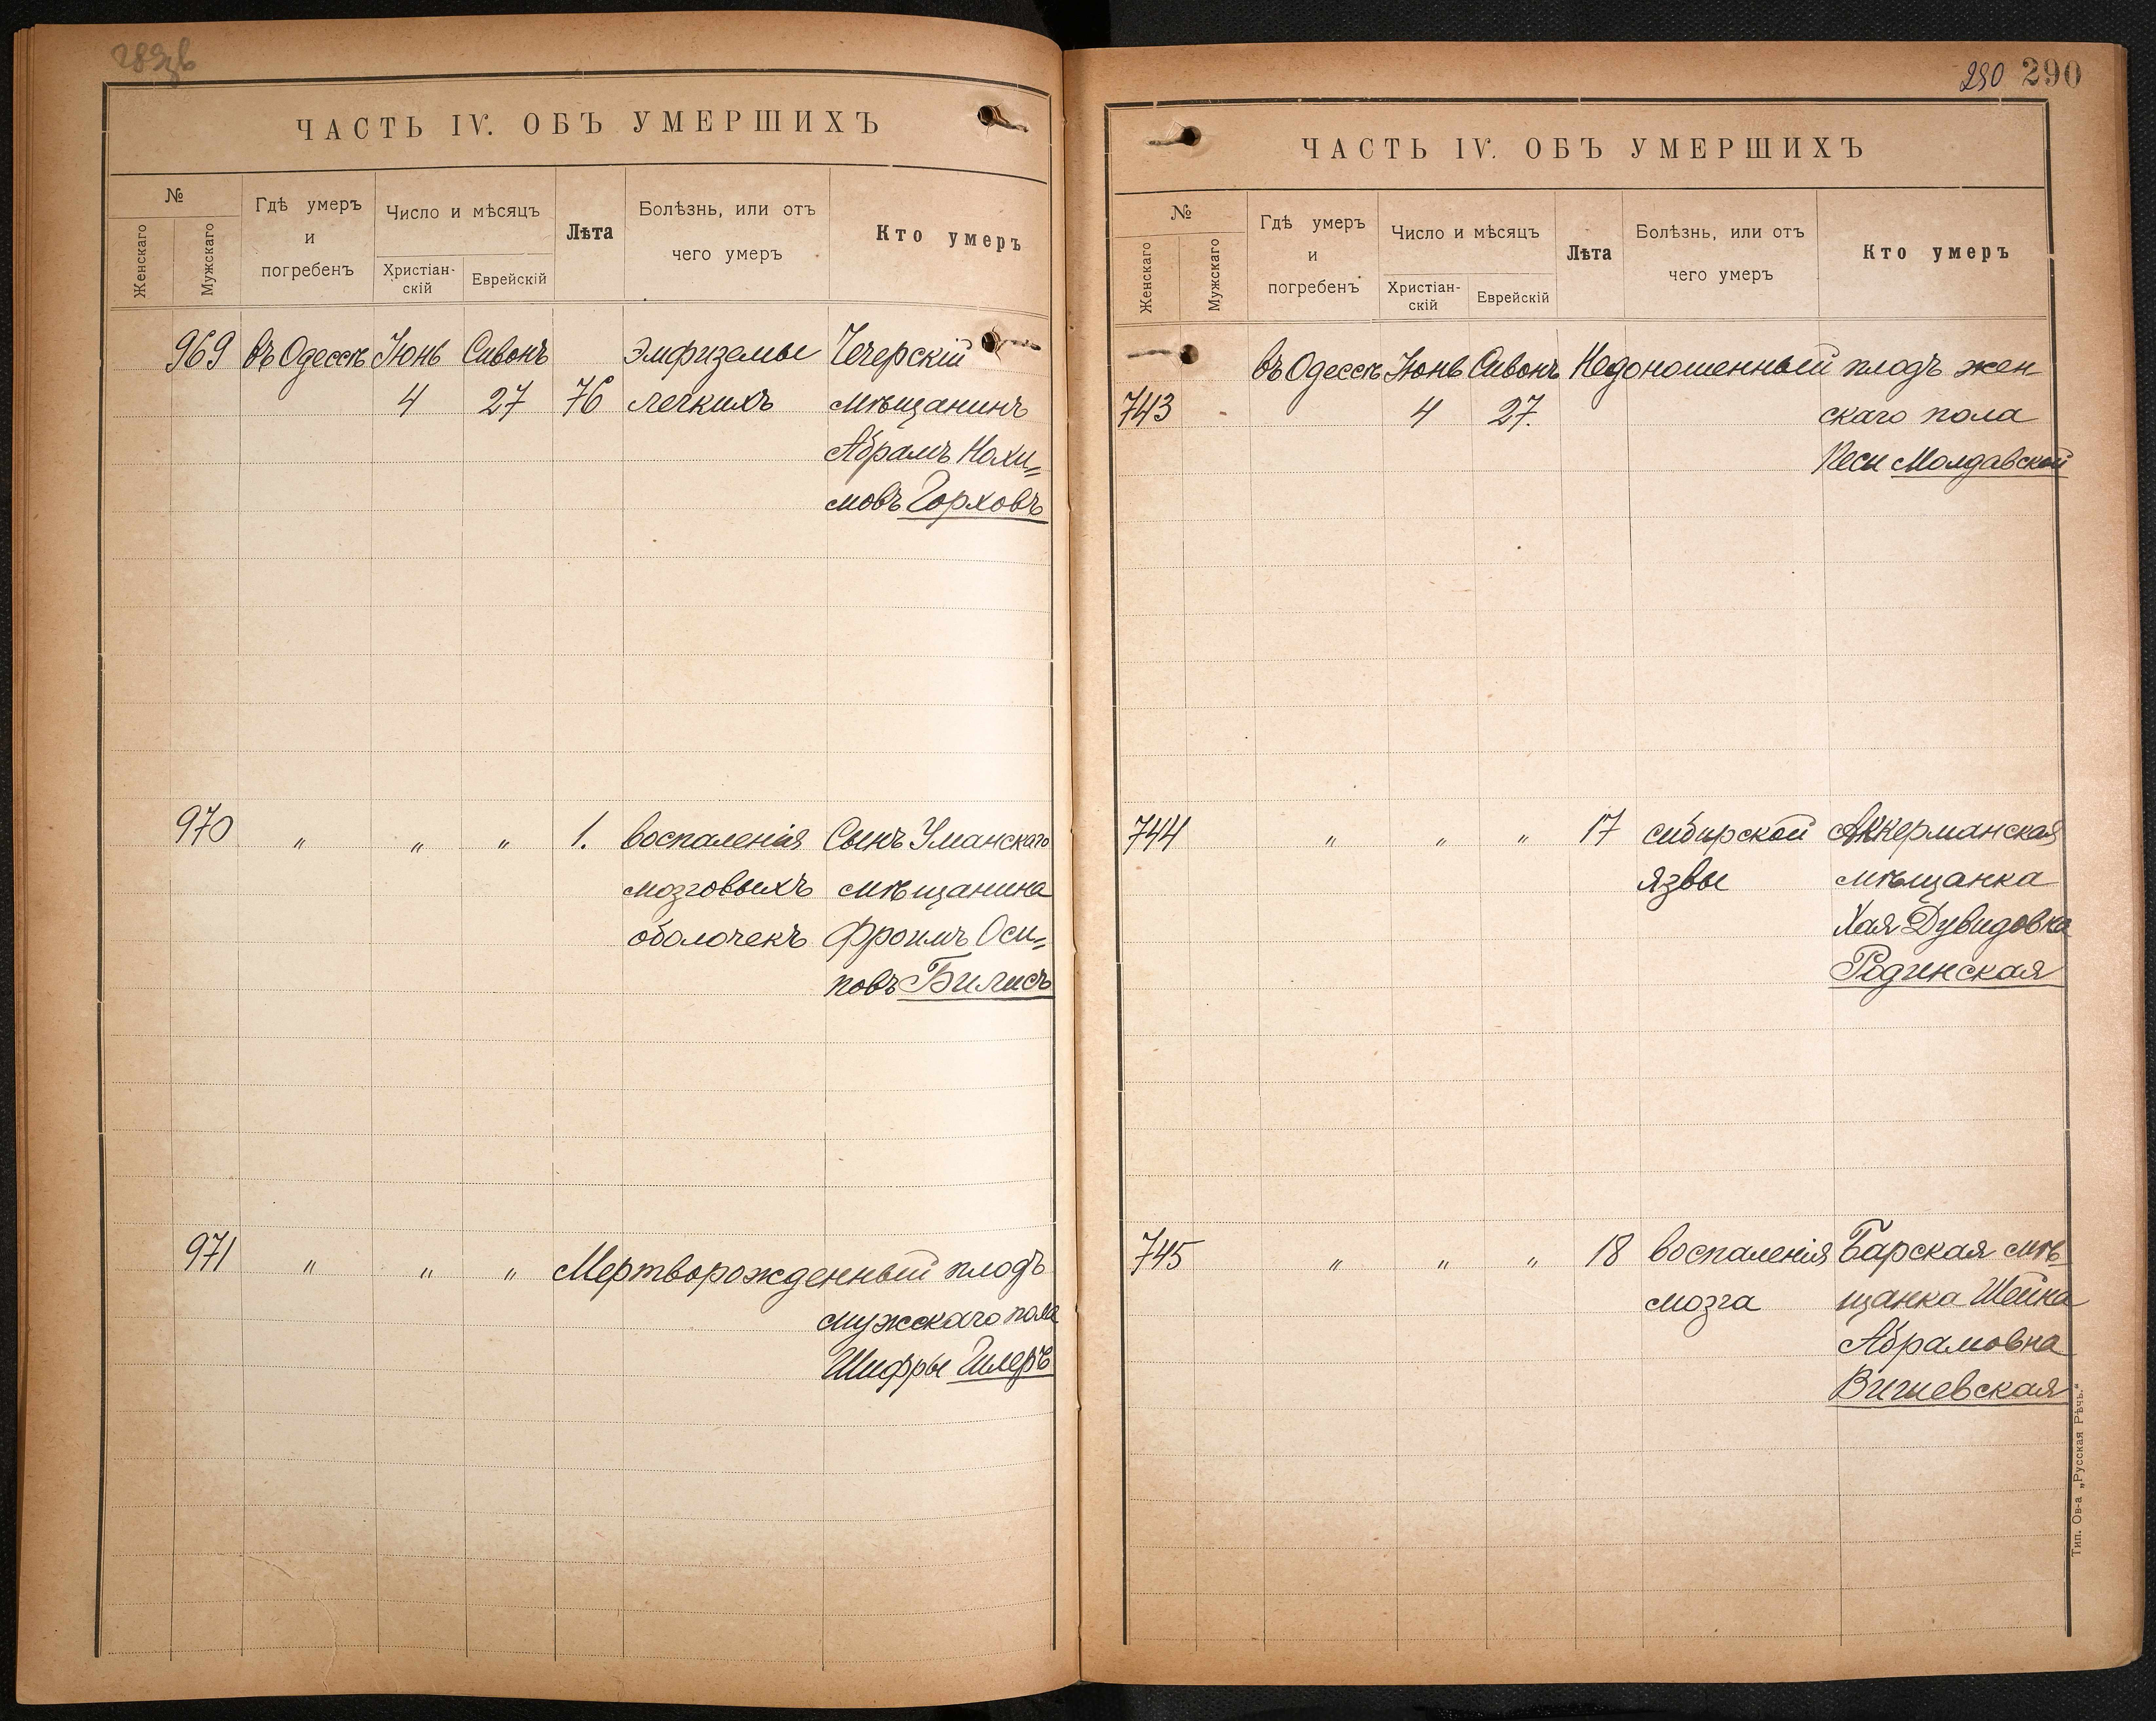 ЧАСТЬ IV. ОБЪ УМЕРШИХЪ
№
Женскаго
Мужскаго
Гдѣ умеръ
и
погребенъ
Число и мѣсяцъ
Христіан-
скій
Еврейскій
Лѣта
Болѣзнь, или отъ
чего умеръ
Кто умеръ
969 въ Одессѣ Іюнь Сивонъ Эмфиземы Чечерскій
4 27 76 легкихъ мѣщанинъ
Абрамъ Нохи=
мовъ Горховъ
970 " " " 1. воспаленія Сынъ Уманскаго
мозговыхъ мѣщанина
оболочекъ Фроимъ Оси=
повъ Билисъ
971 " " " Мертворожденный плодъ
мужскаго пола
Шифры Гилеръ
290 290
ЧАСТЬ IV. ОБЪ УМЕРШИХЪ
№
Женскаго
Мужскаго
Гдѣ умеръ
и
погребенъ
Число и мѣсяцъ
Христіан-
скій
Еврейскій
Лѣта
Болѣзнь, или отъ
чего умеръ
Кто умеръ
въ Одессѣ Іюнь Сивонъ Недоношенный плодъ жен
743 4 27. скаго пола
Песи Молдавской
744 " " " 17 сибирской Аккерманская
язвы мѣщанка
Хая Дувидовна
Родинская
745 " " " 18 воспаленія Барская мѣ-
мозга щанка Шейна
Абрамовна
Вигиевская
Тип. Ов-а „Русская Рѣчь."